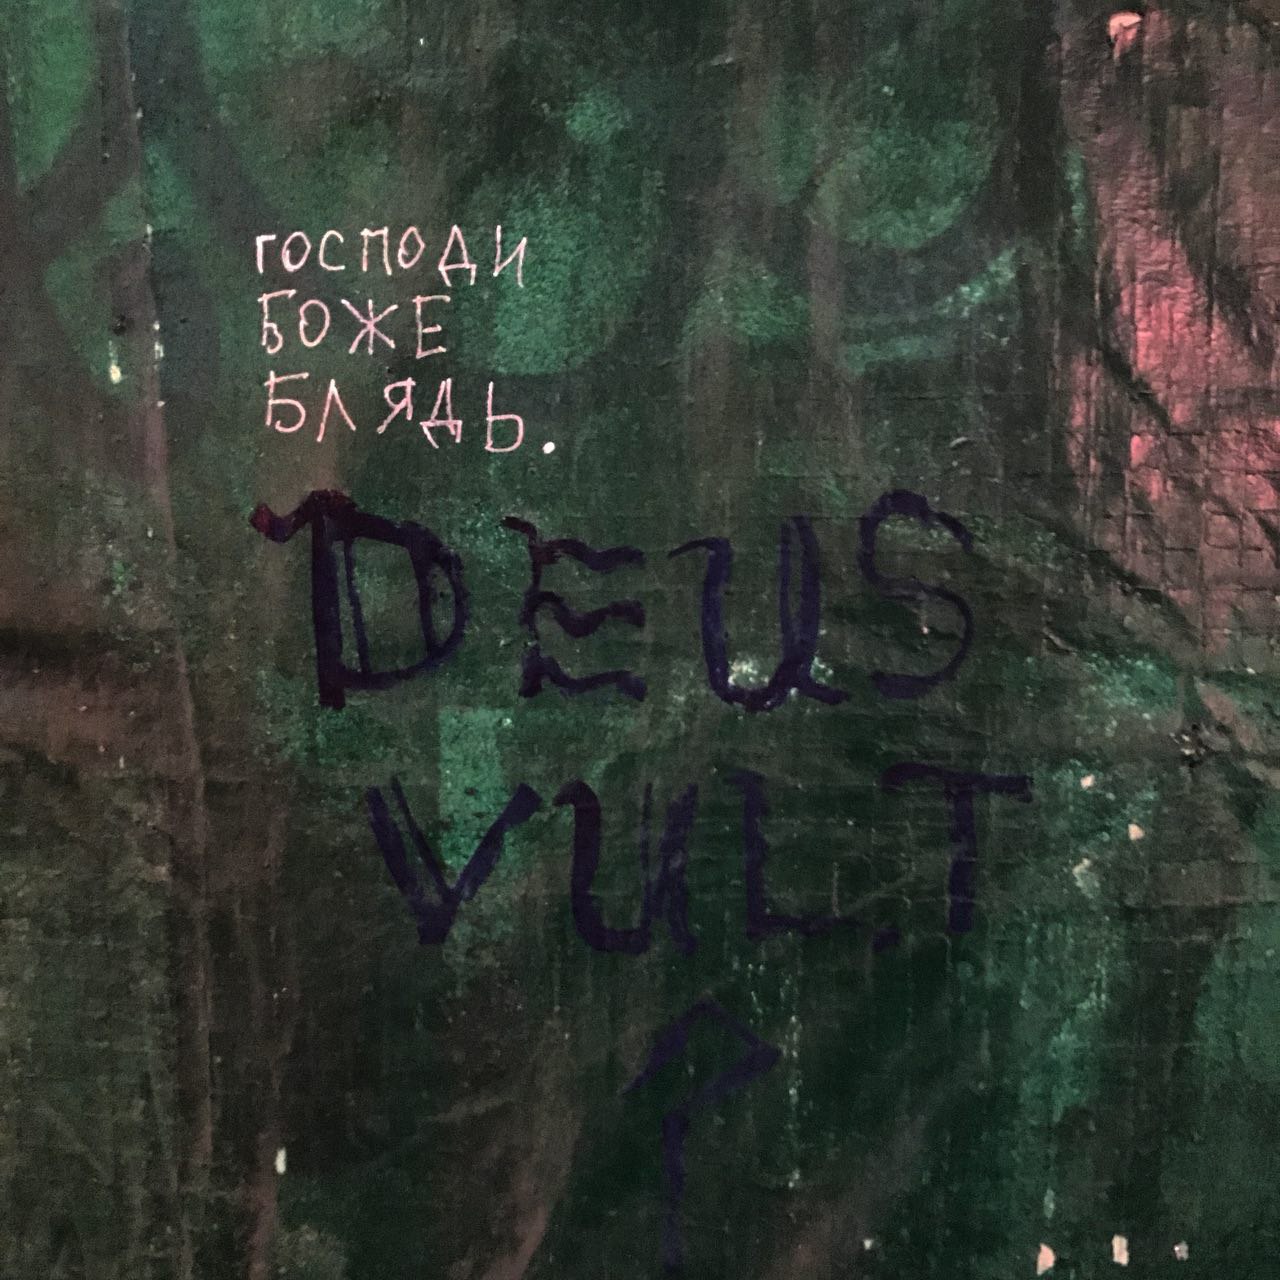 ГОСПОДИ
БОЖЕ
БЛЯДЬ.
DEUS
VULT
?